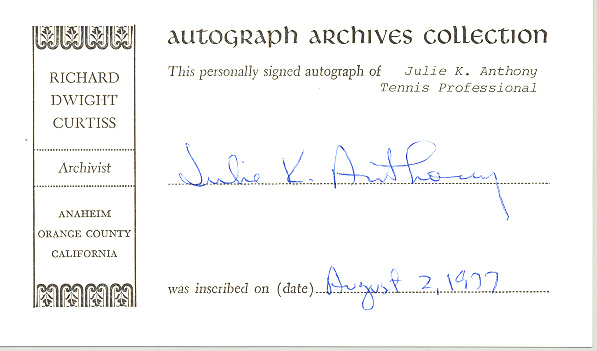 AUTOGRAPH ARCHIVES COLLECTION
RICHARD
DWIGHT
CURTISS
Archivist
ANAHEIM
ORANGE COUNTY
CALIFORNIA
This personally signed autograph of Julie K. Anthony
Tennis Professional
Julie K. Anthony
was inscribed on (date) August 2, 1977